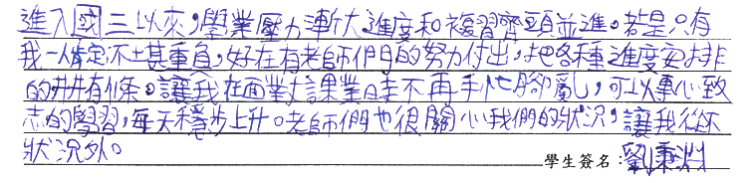 進入國三以來,學業壓力漸大進度和複習齊頭並進。若是只有
我一人肯定不堪其重負,好在有老師們的努力付出,把各種進度安排
的井井有條。讓我在面對課業時不再手忙腳亂,可以專心致
志的學習,每天穩步上升。老師們也很關心我們的狀況,讓我從不
狀況外。
學生簽名:劉秉洲